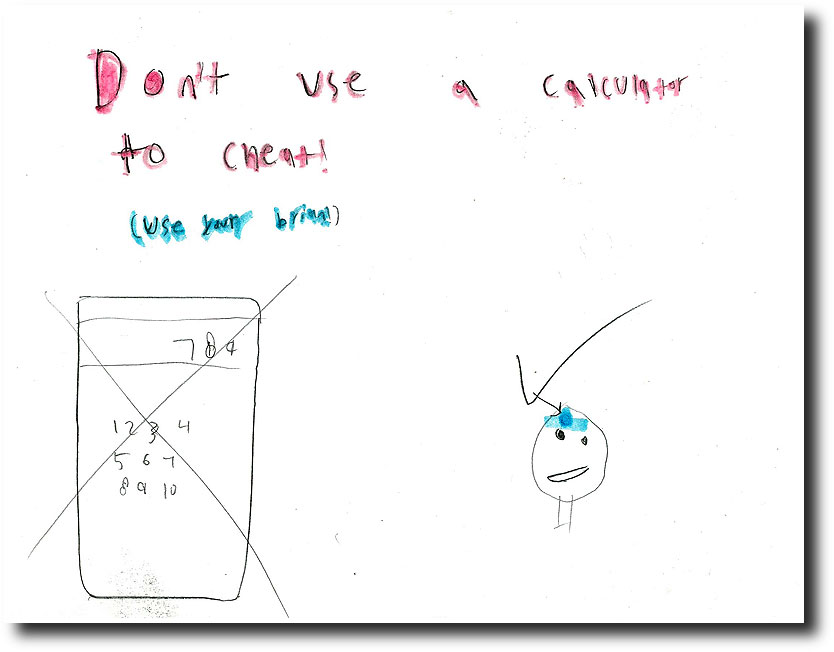 Don't use a calculator
to cheat!
(use your brian!)
784
1 2 3 4
5 6 7
8 9 10